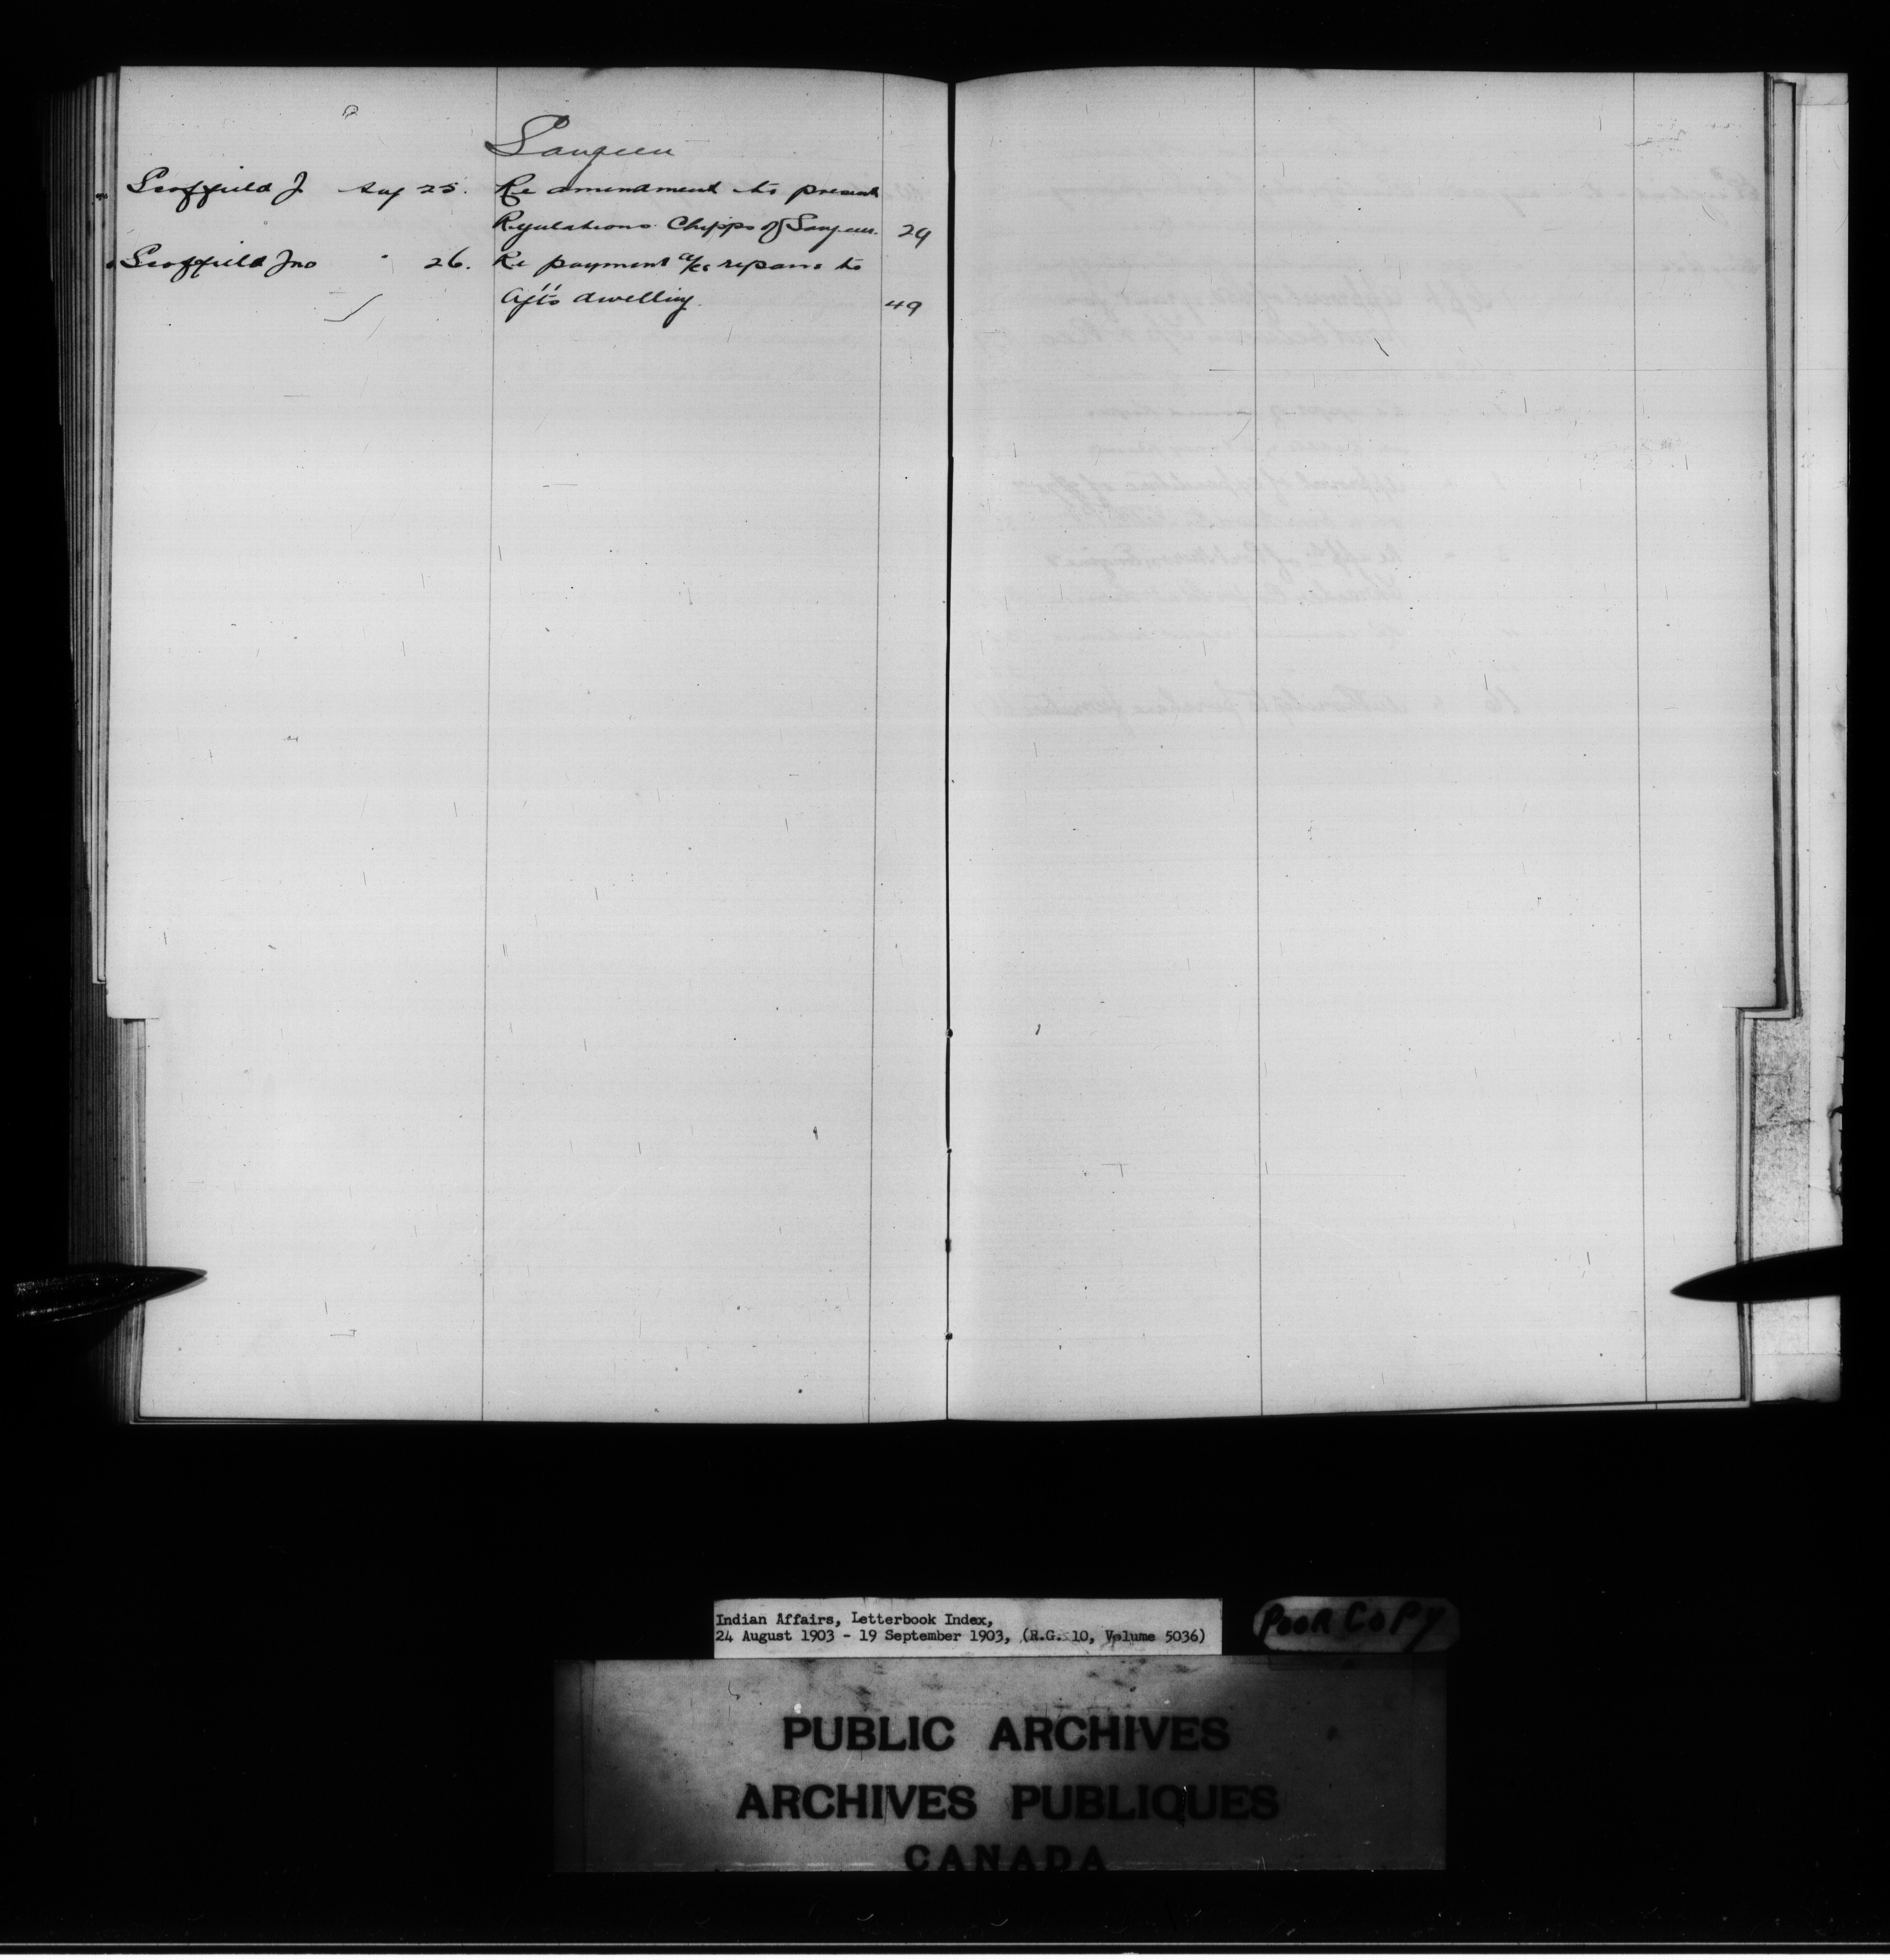 Saugeen
Scoffield J Aug 25. Re amendment to present
Regulations Chipps of Saugeen. 29
Scoffield Jno " 26. Re payment a/cs repairs to
Agts dwelling. 49
Indian Affairs, Letterbook Index,
24 August 1903 - 19 September 1903, (R.G. 10, Volume 5036)
POOR COPY
PUBLIC ARCHIVES
ARCHIVES PUBLIQUES
CANADA